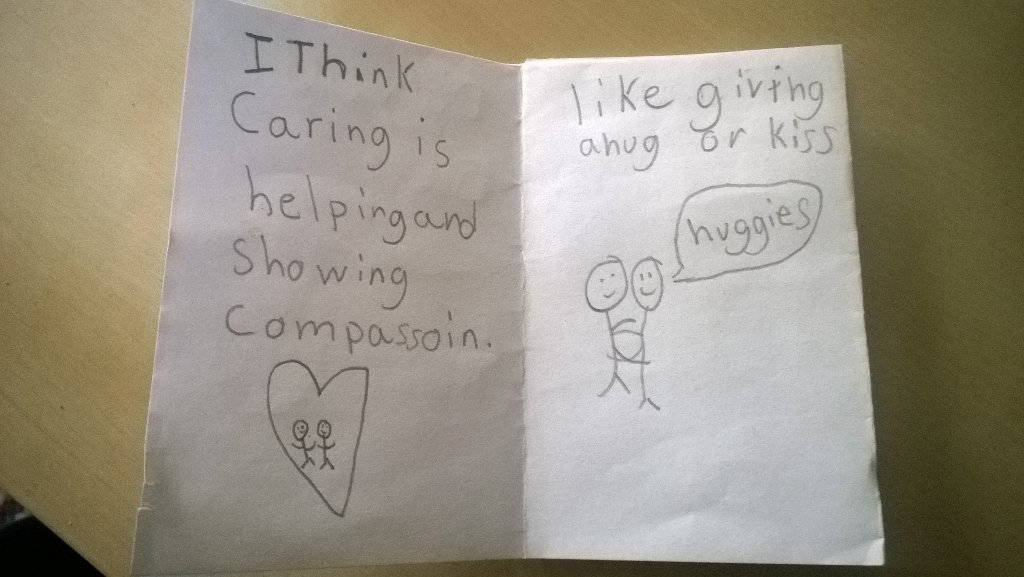 I Think
Caring is
helping and
showing
Compassoin.
like giving
ahug or kiss
huggies